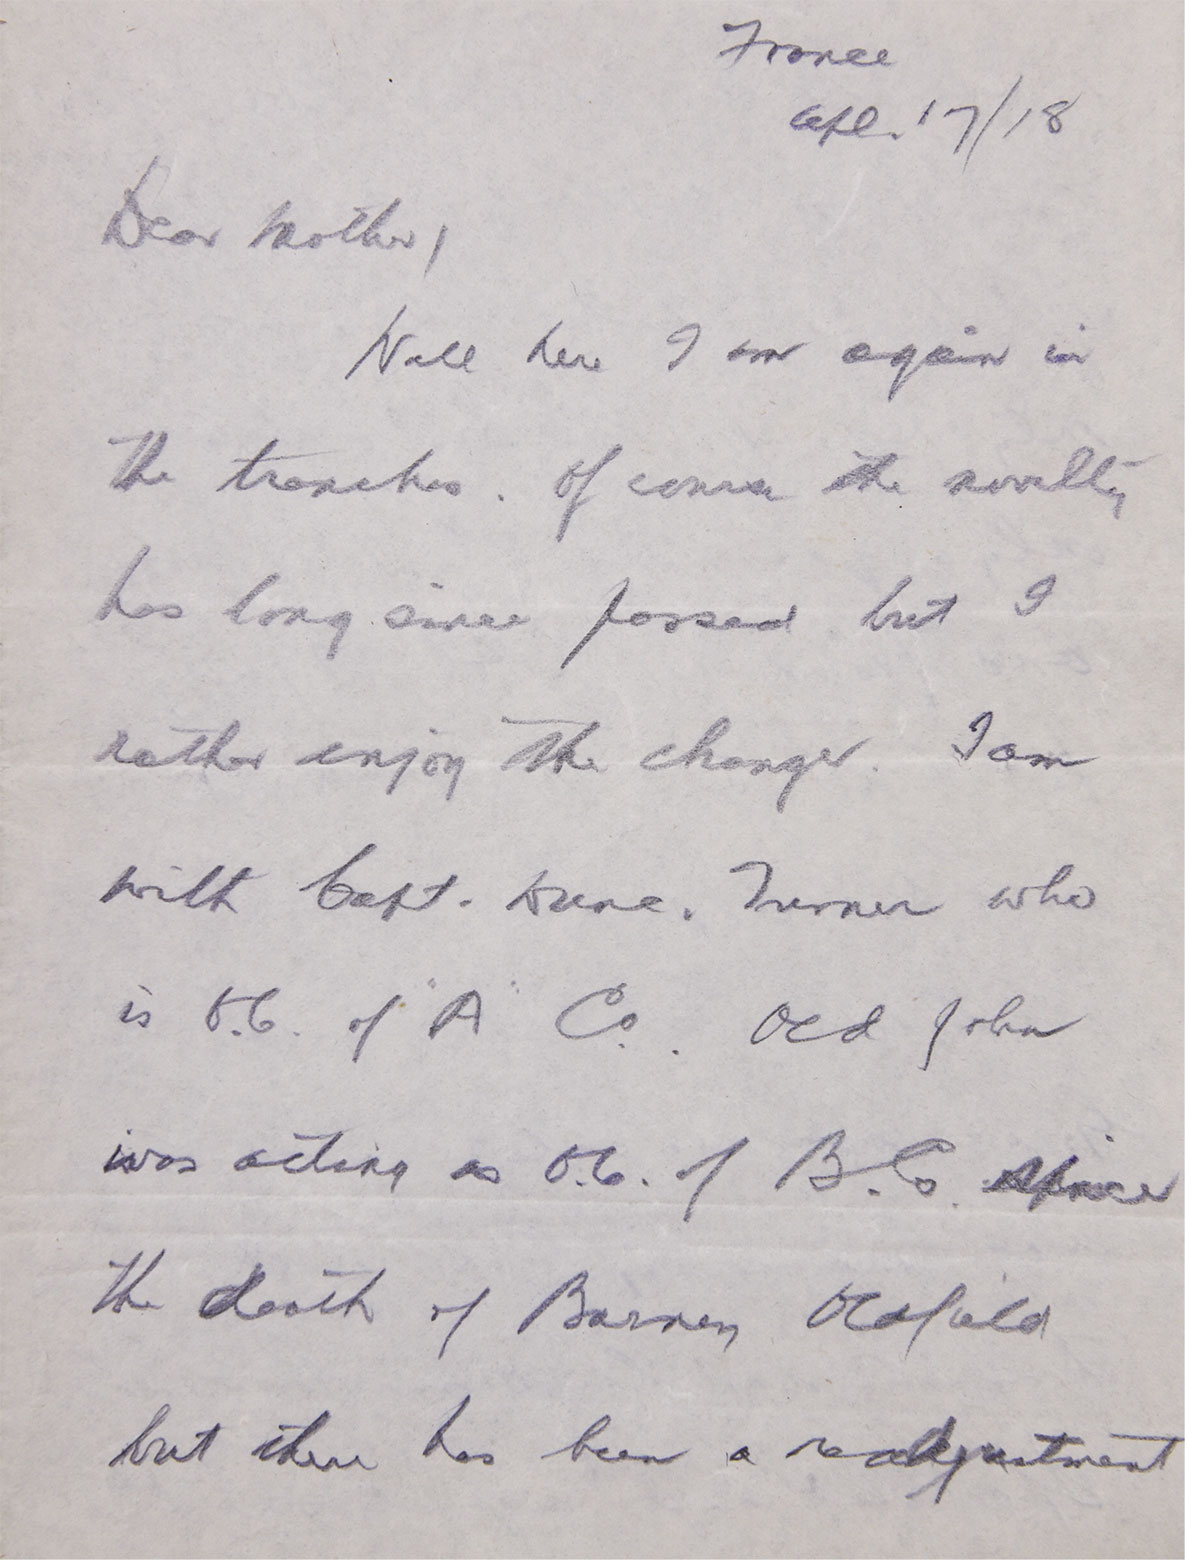 France
Apl. 17/18
Dear Mother,
Well here I am again in
the trenches. Of course the novelty
has long since passed but I
rather enjoy the change. I am
with Capt. Dunc. Turner who
is O.C. of "A" Co. Old John
was acting as O.C. of B. Co. since
the death of Barney Oldfield
but there has been a readjustment